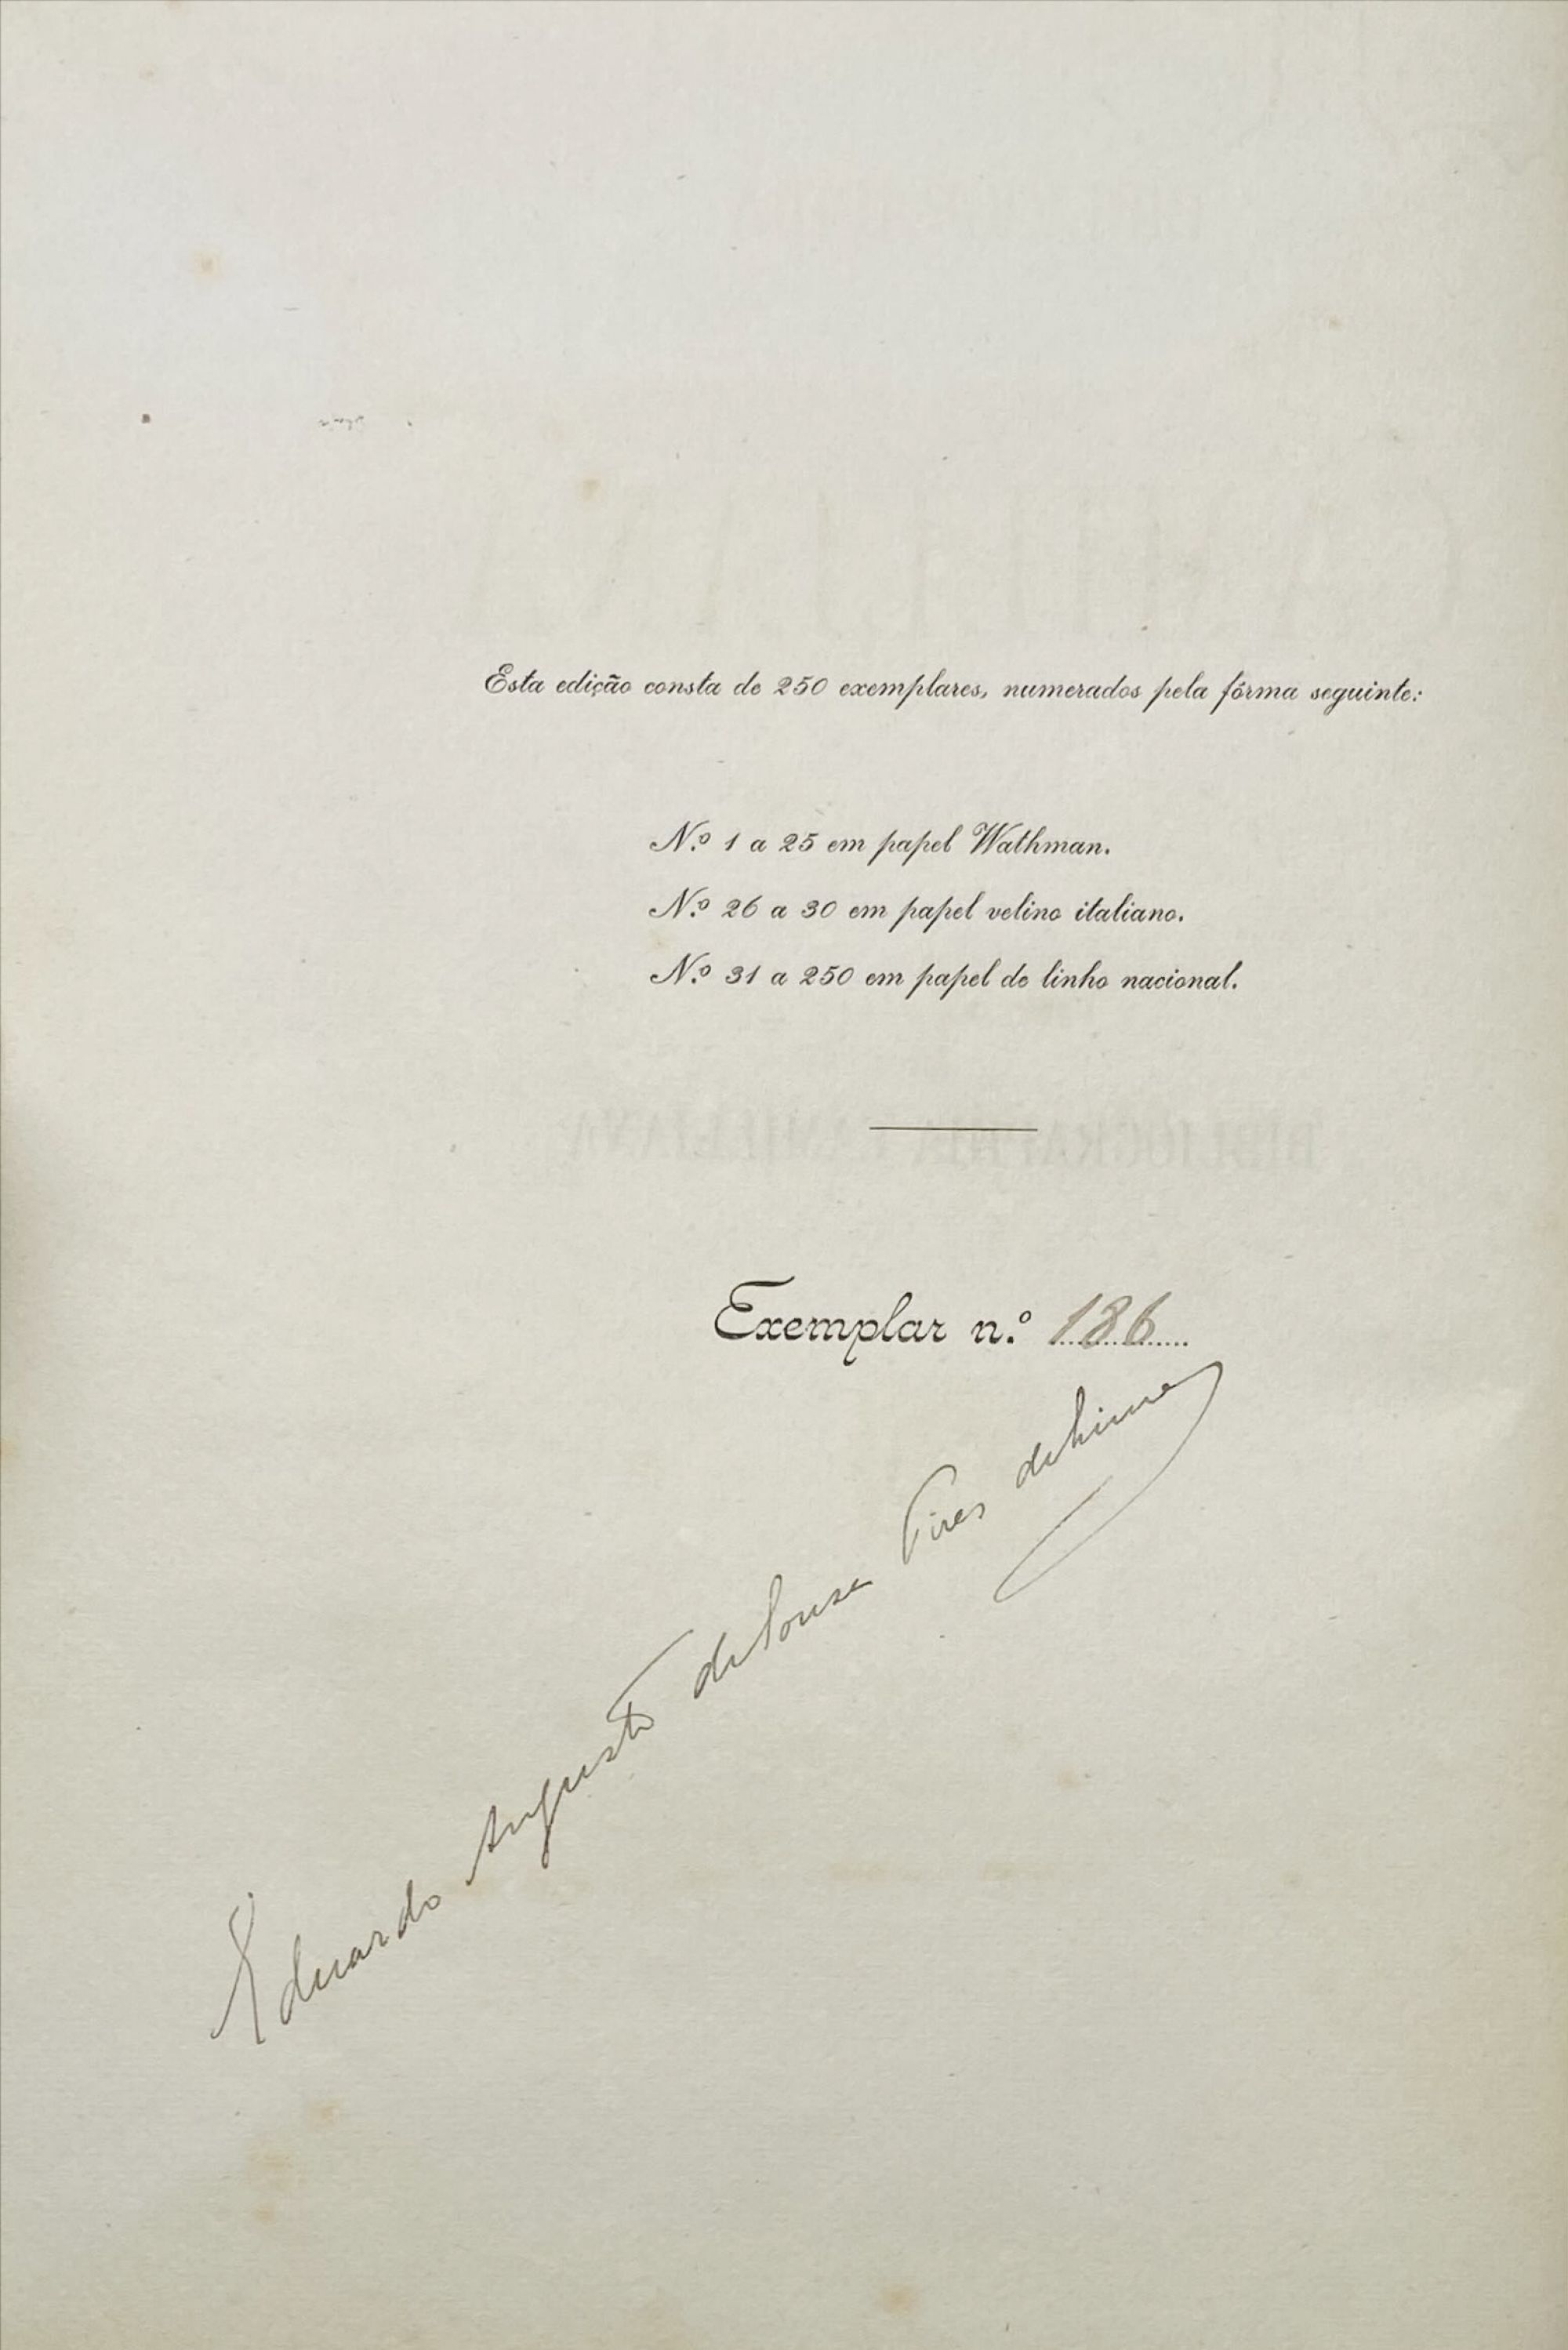 Esta edição consta de 250 exemplares, numerados pela fórma seguinte:
N.º 1 a 25 em papel Wathman.
N.º 26 a 30 em papel velino italiano.
N.º 31 a 250 em papel de linho nacional.
BIBLIOGRAPHIA CAMILLIANA
Exemplar n.º 186
Eduardo Augusto de Sousa Pires de Lima